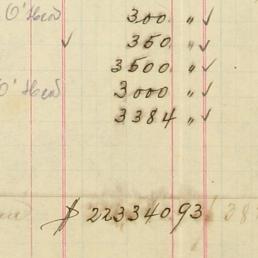 O'Herd 300 " ✓
✓ 350 " ✓
3500 " ✓
O'Herd 3000 " ✓
3384 " ✓
$ 22334093 38